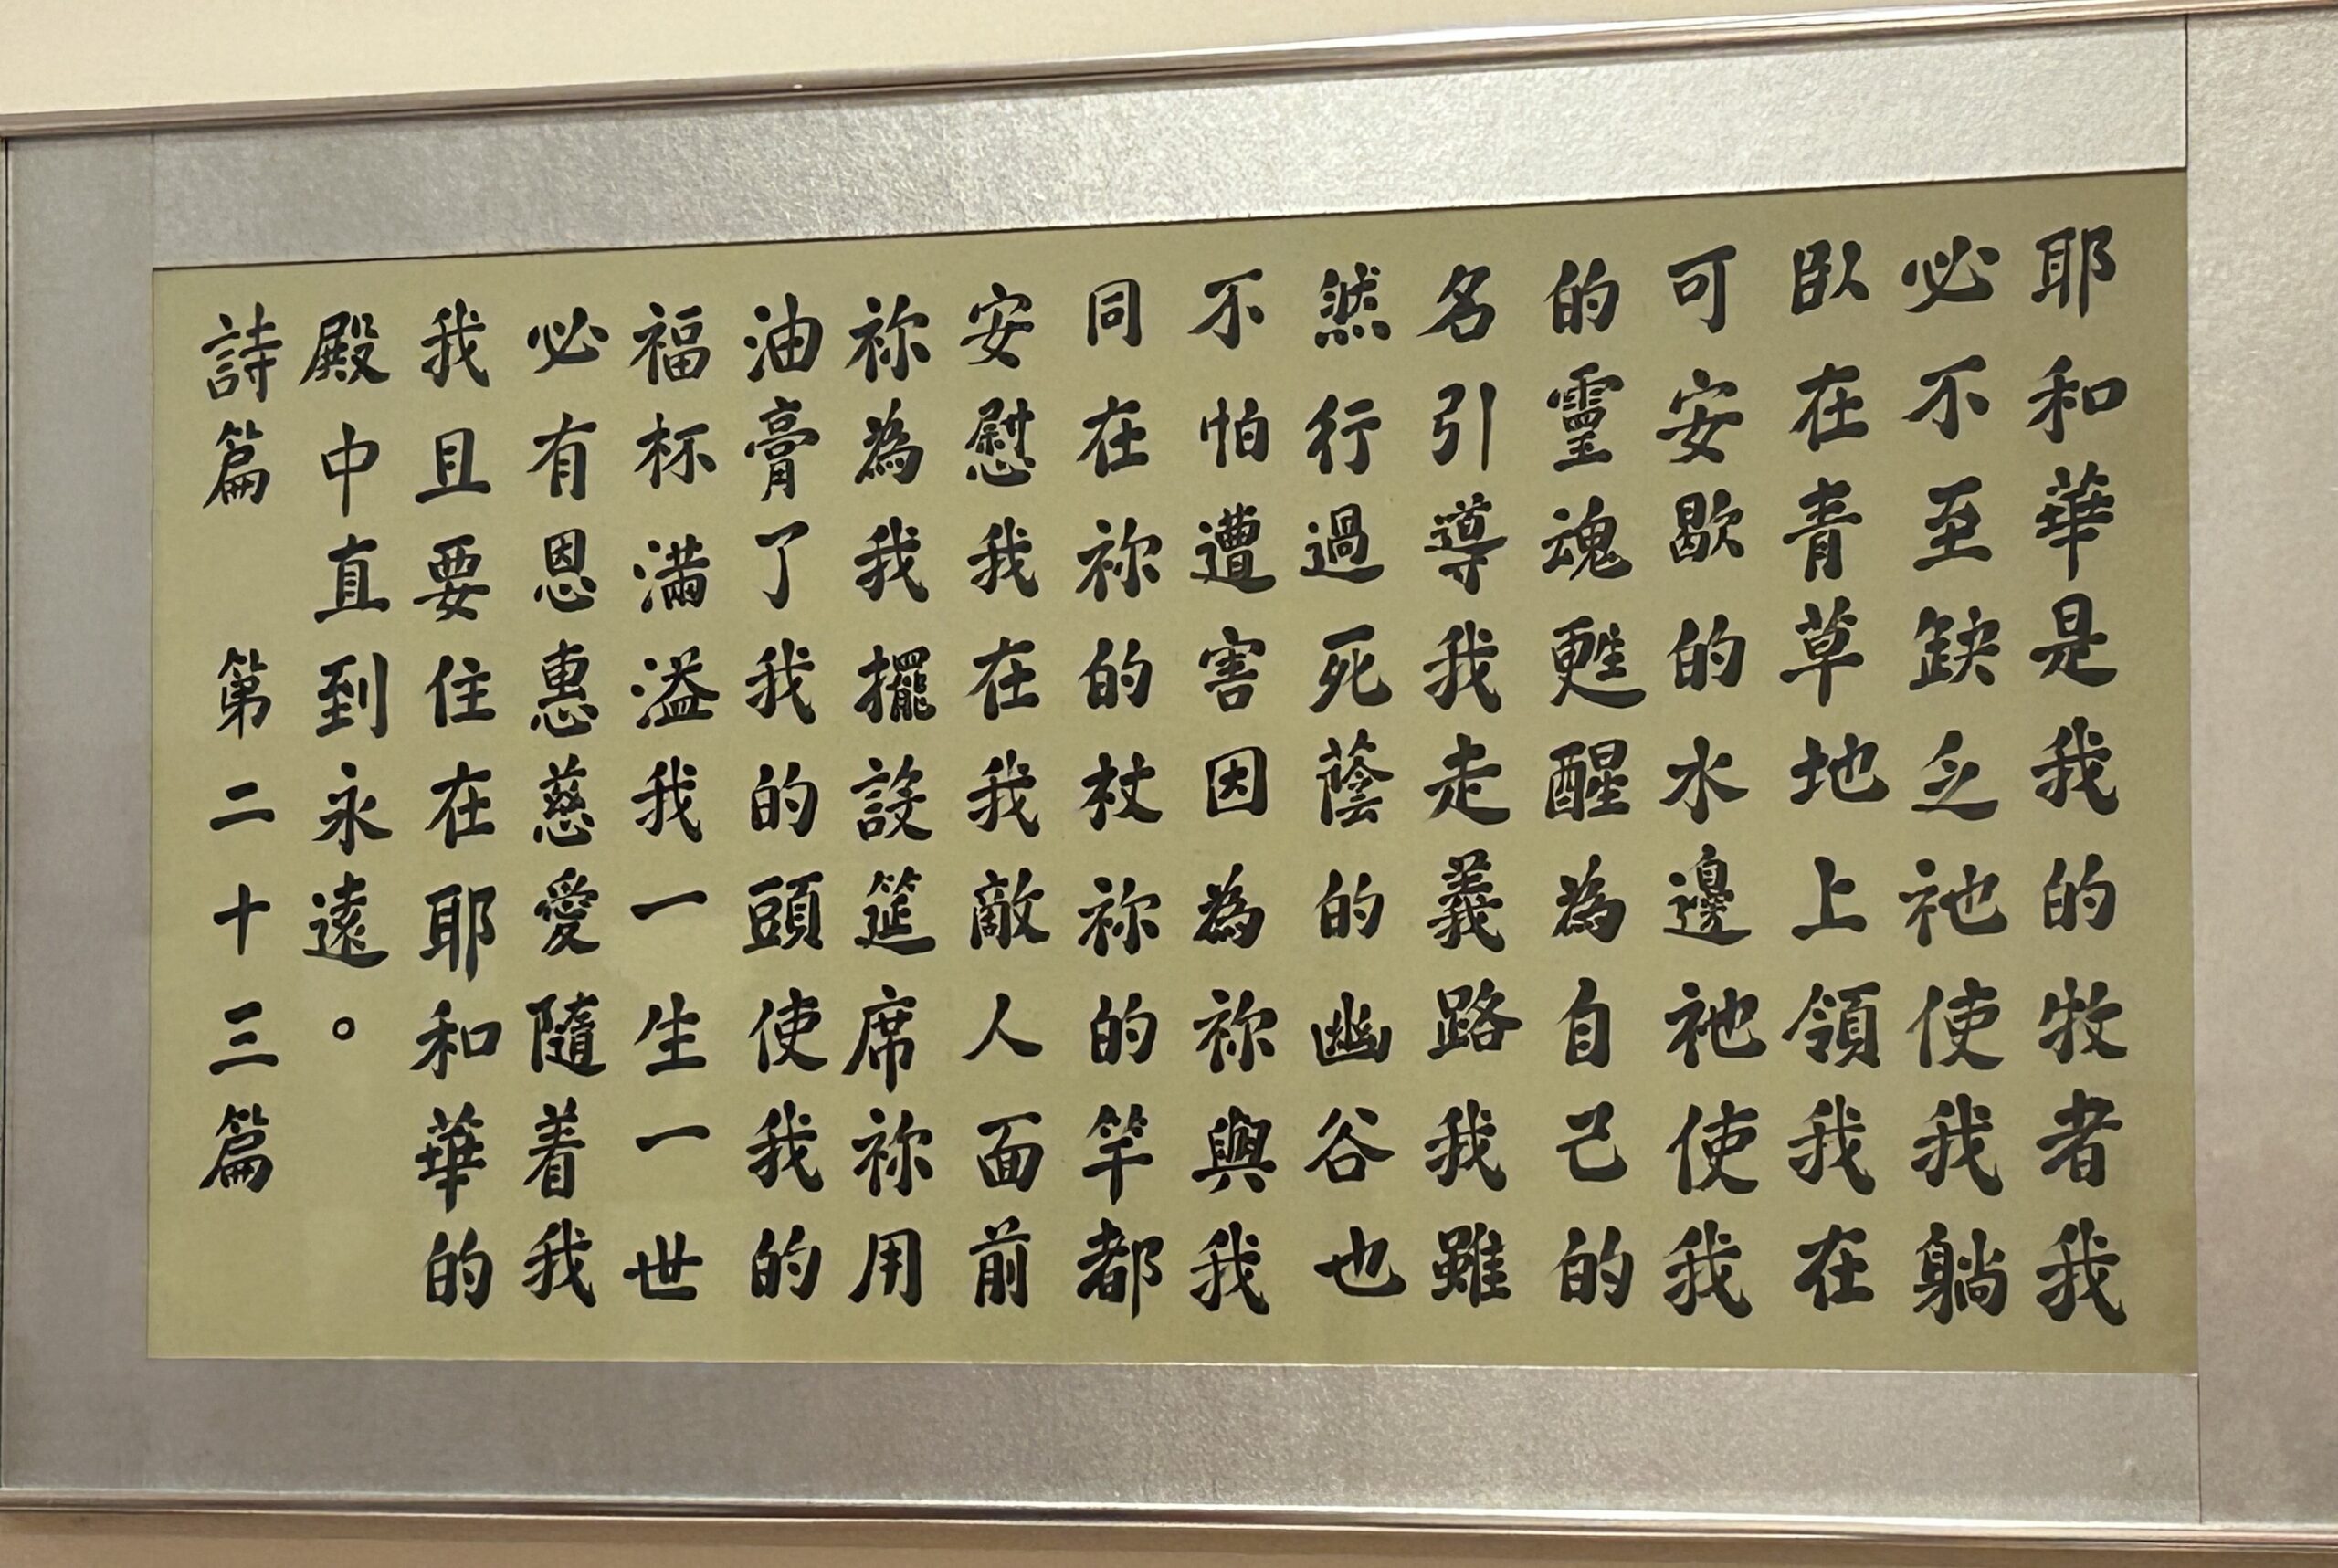 耶和華是我的牧者我
必不至缺乏祂使我躺
臥在青草地上領我在
可安歇的水邊祂使我
的靈魂甦醒為自己的
名引導我走義路我雖
然行過死蔭的幽谷也
不怕遭害因為祢與我
同在祢的杖祢的竿都
安慰我在我敵人面前
祢為我擺設筵席祢用
油膏了我的頭使我的
福杯滿溢我一生一世
必有恩惠慈愛隨着我
我且要住在耶和華的
殿中直到永遠。
詩篇 第二十三篇